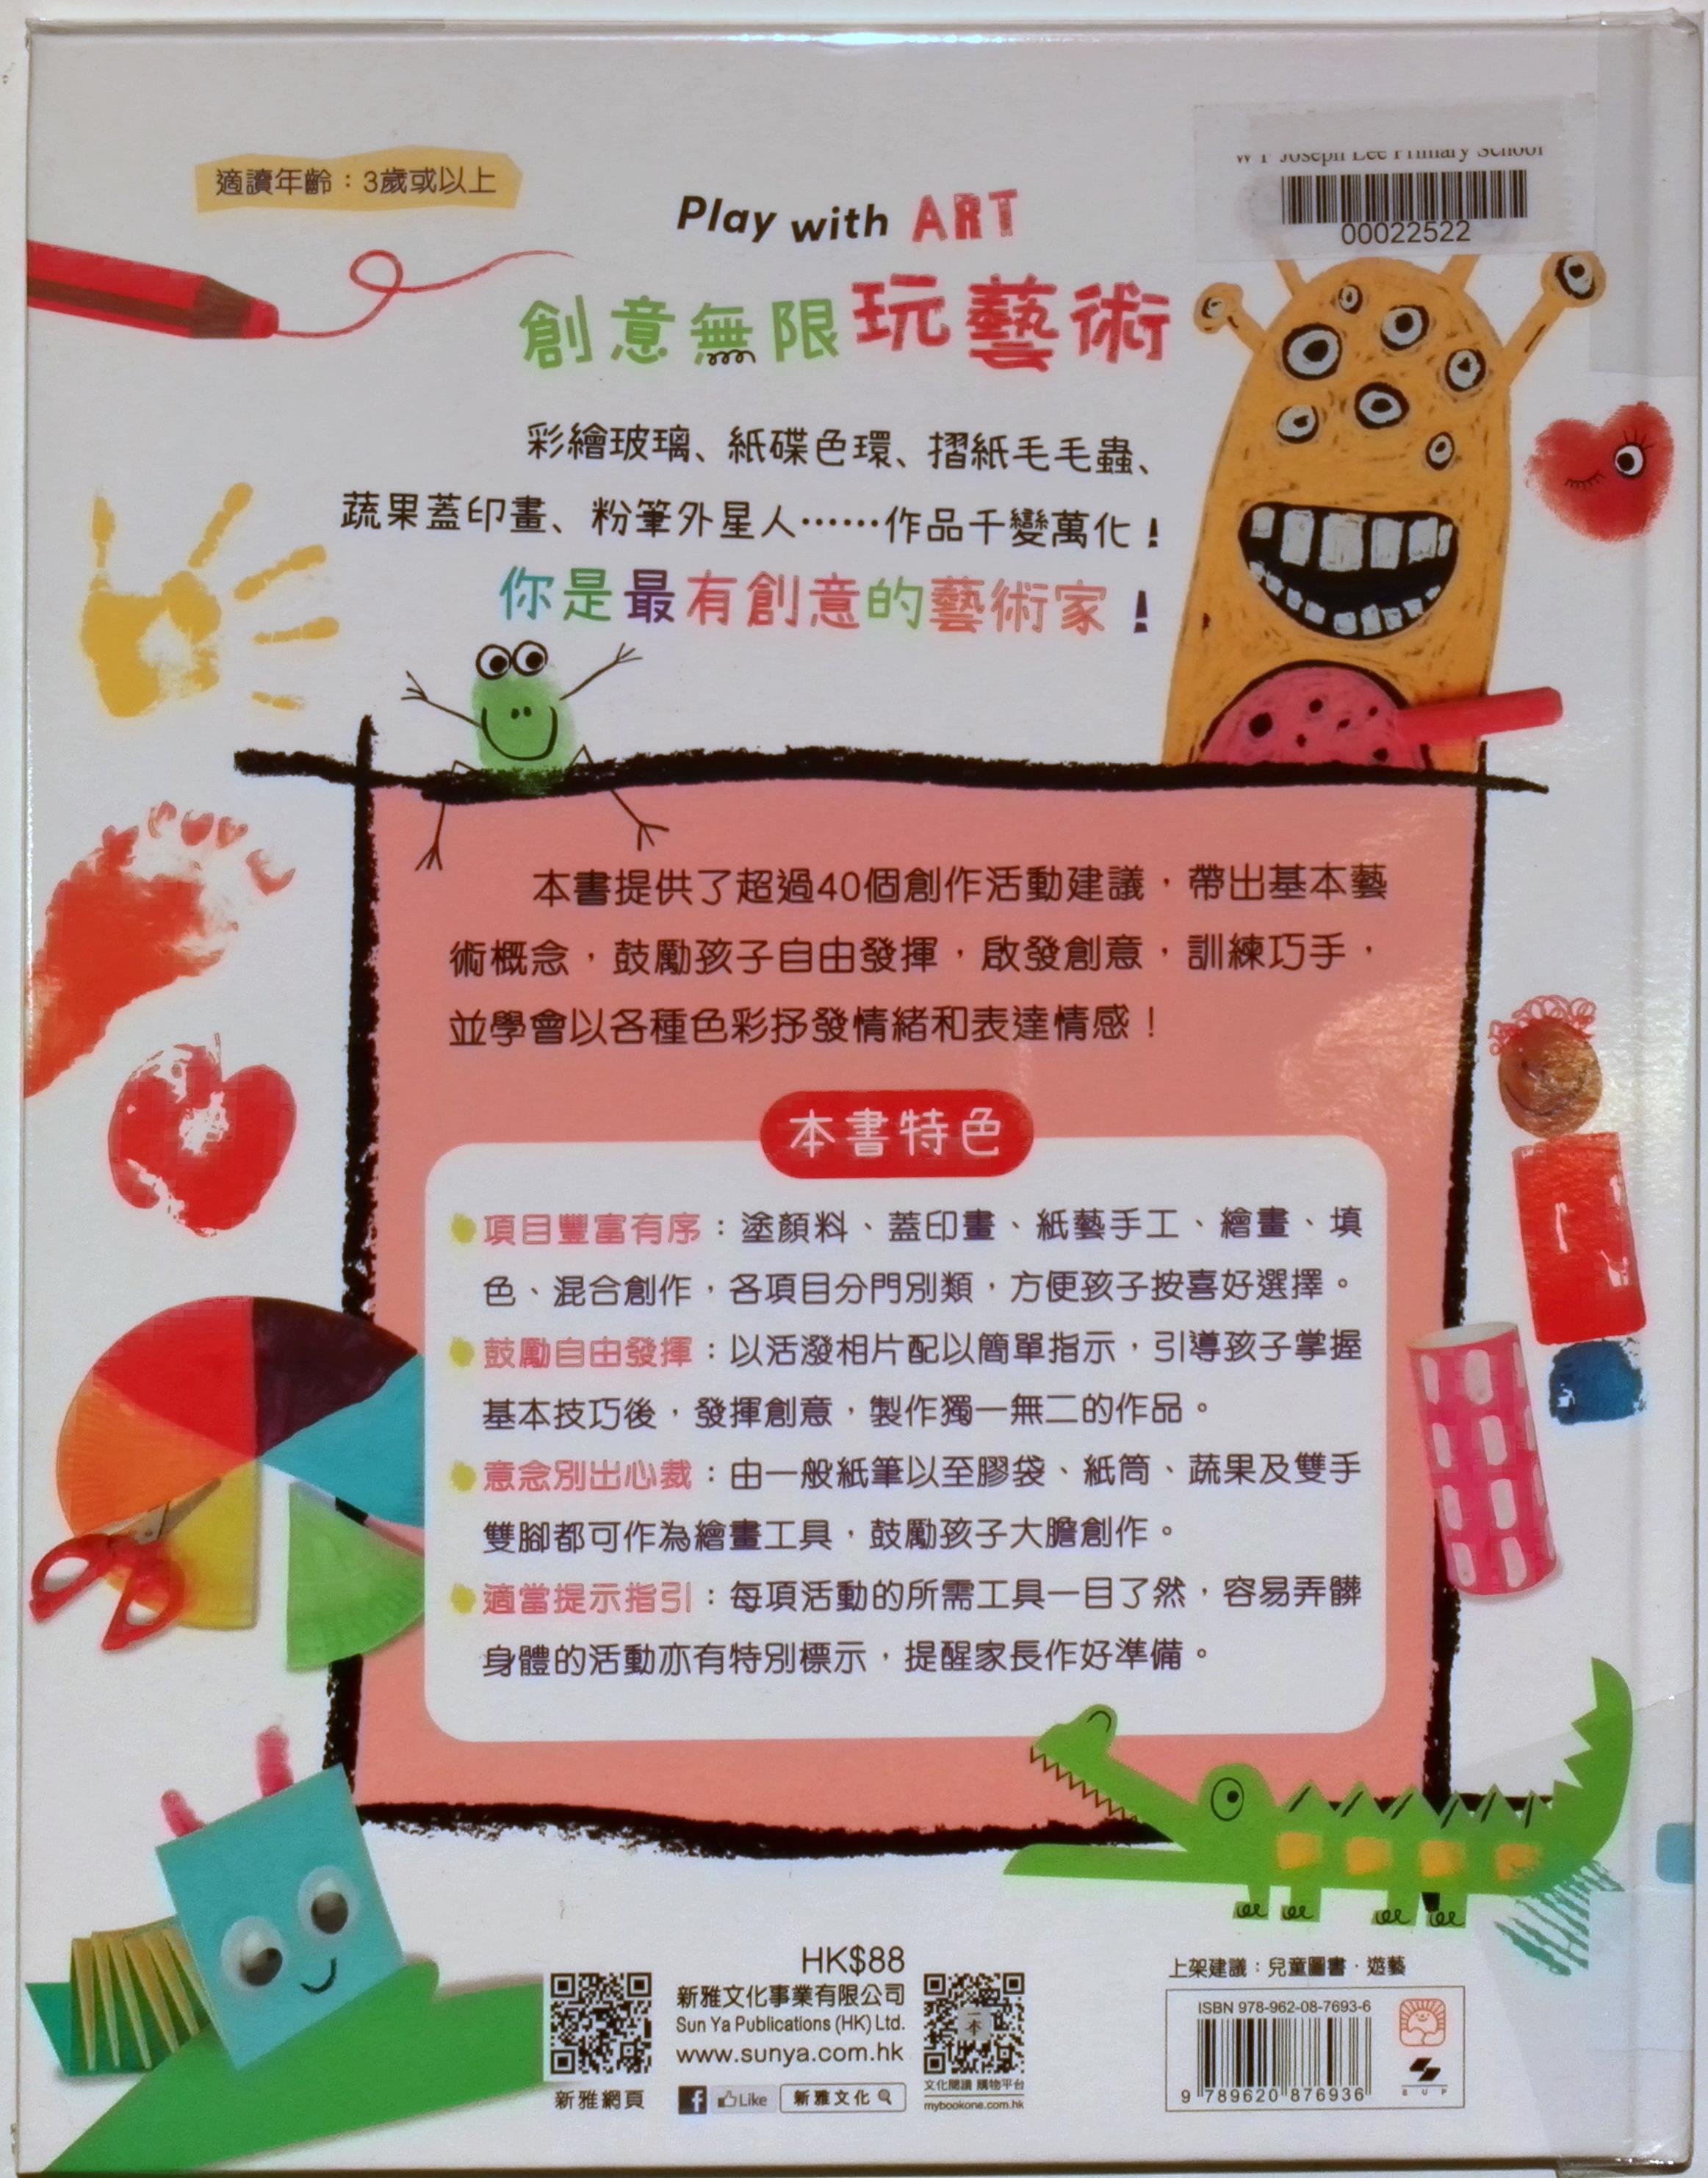 W F Joseph Lee Primary School
00022522
適讀年齡：3歲或以上
Play with ART
創意無限玩藝術
彩繪玻璃、紙碟色環、摺紙毛毛蟲、
蔬果蓋印畫、粉筆外星人……作品千變萬化！
你是最有創意的藝術家！
本書提供了超過40個創作活動建議，帶出基本藝
術概念，鼓勵孩子自由發揮，啟發創意，訓練巧手，
並學會以各種色彩抒發情緒和表達情感！
本書特色
項目豐富有序：塗顏料、蓋印畫、紙藝手工、繪畫、填
色、混合創作，各項目分門別類，方便孩子按喜好選擇。
鼓勵自由發揮：以活潑相片配以簡單指示，引導孩子掌握
基本技巧後，發揮創意，製作獨一無二的作品。
意念別出心裁：由一般紙筆以至膠袋、紙筒、蔬果及雙手
雙腳都可作為繪畫工具，鼓勵孩子大膽創作。
適當提示指引：每項活動的所需工具一目了然，容易弄髒
身體的活動亦有特別標示，提醒家長作好準備。
HK$88
新雅文化事業有限公司
Sun Ya Publications (HK) Ltd.
www.sunya.com.hk
新雅網頁
f Like 新雅文化
一本
文化閱讀 購物平台
mybookone.com.hk
上架建議：兒童圖書·遊藝
ISBN 978-962-08-7693-6
9 789620 876936
SUP